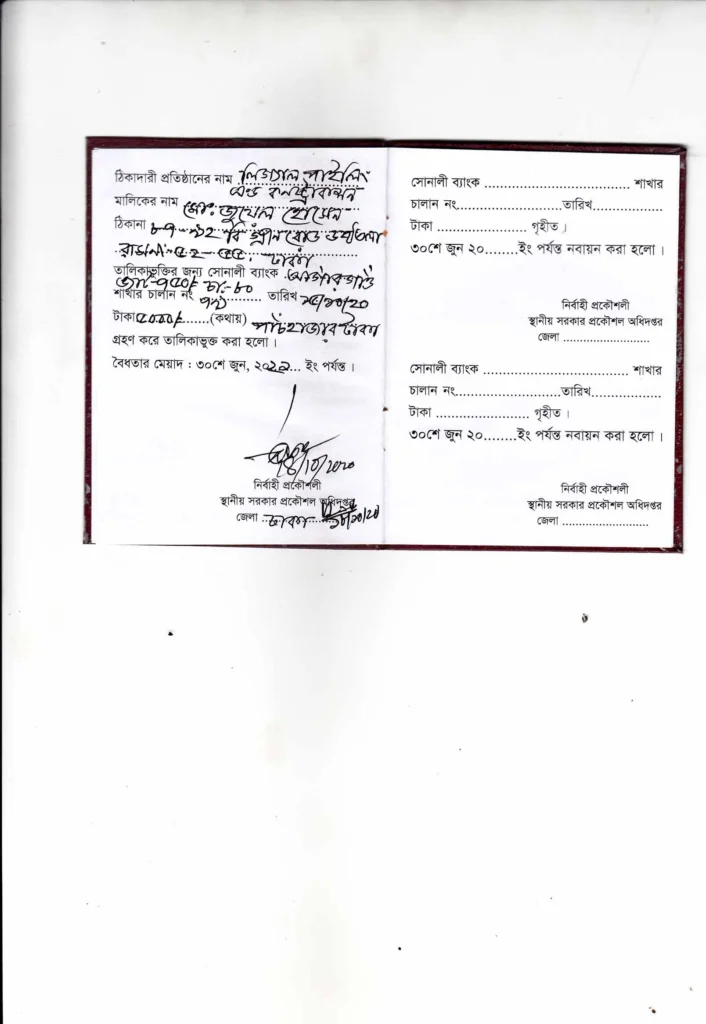 ঠিকাদারী প্রতিষ্ঠানের নাম লিগ্যাল পাইলিং
এন্ড কনস্ট্রাকশন
মালিকের নাম মো: জুয়েল হোসেন
ঠিকানা গ্রীন রোড
ঢাকা
তালিকাভূক্তির জন্য সোনালী ব্যাংক
শাখার চালান নং তারিখ
টাকা ৫০০০/-......(কথায়) পাঁচ হাজার টাকা
গ্রহণ করে তালিকাভূক্ত করা হলো ।
বৈধতার মেয়াদ : ৩০শে জুন, ২০২১... ইং পর্যন্ত ।
নির্বাহী প্রকৌশলী
স্থানীয় সরকার প্রকৌশল অধিদপ্তর
জেলা ..ঢাকা
সোনালী ব্যাংক ...................................... শাখার
চালান নং...................তারিখ.................
টাকা ....................... গৃহীত ।
৩০শে জুন ২০........ইং পর্যন্ত নবায়ন করা হলো ।
নির্বাহী প্রকৌশলী
স্থানীয় সরকার প্রকৌশল অধিদপ্তর
জেলা ...........................
সোনালী ব্যাংক ....................................... শাখার
চালান নং...........................তারিখ.................
টাকা ....................... গৃহীত ।
৩০শে জুন ২০........ইং পর্যন্ত নবায়ন করা হলো ।
নির্বাহী প্রকৌশলী
স্থানীয় সরকার প্রকৌশল অধিদপ্তর
জেলা ...........................